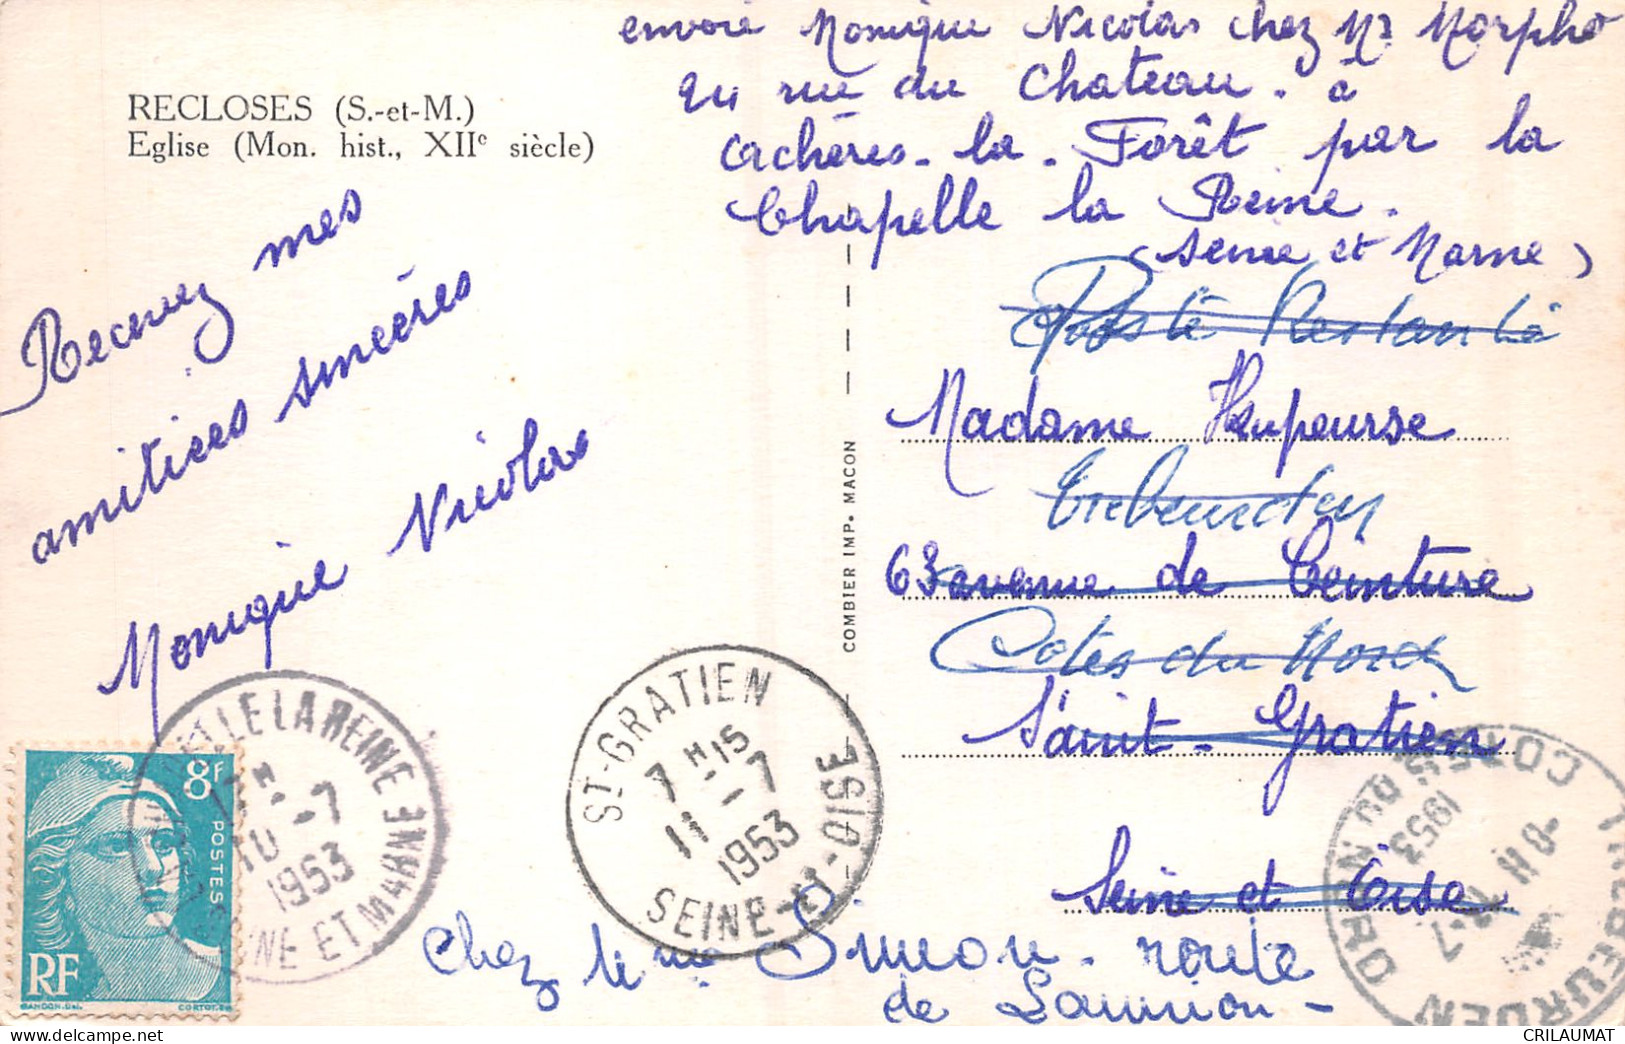 envoie Monique Nicolas chez Mr Morpho
24 rue du Chateau. à
Achères-la-Forêt par la
Chapelle la Reine.
(Seine et Marne)
RECLOSES (S.-et-M.)
Eglise (Mon. hist., XIIe siècle)
Recevez mes
amitiées sincères
Monique Nicolas
COMBIER IMP. MACON
Poste Restante
Madame Heupeurse
Trebeurden
63 avenue de Ceinture
Côtes du Nord
Saint-Gratien
Seine et Oise
Chez Mme Simeon - route
de Lannion -
LE LA REINE
10-7
1953
SEINE ET MARNE
ST-GRATIEN
7H15
11-7
1953
SEINE-ET-OISE
TREBEURDEN
-7
1953
COTES DU NORD
8F
POSTES
RF
GANDON. Del.
CORTOT. Sc
CRILAUMAT